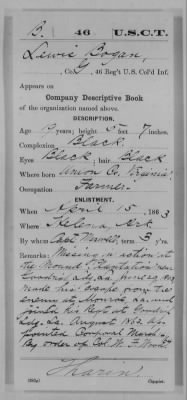 B. 46 U.S.C.T.
Lewis Bogan,
Co. G, 46 Reg't U.S. Col'd Inf.
Appears on
Company Descriptive Book
of the organization named above.
DESCRIPTION.
Age 19 years; height 5 feet 7 inches.
Complexion Black
Eyes Black; hair Black
Where born Union Co, Virginia
Occupation Farmer
ENLISTMENT.
When April 15, 1863
Where Helena, Ark
By whom Capt ; term 3 y'rs.
Remarks: Missing in action at
the Mound Plantation near
made his escape from the
enemy at Monroe La. and
joined his Regt at
La. August 1863.
Corporal
By order of Col. W. F. Wood
Copyist.